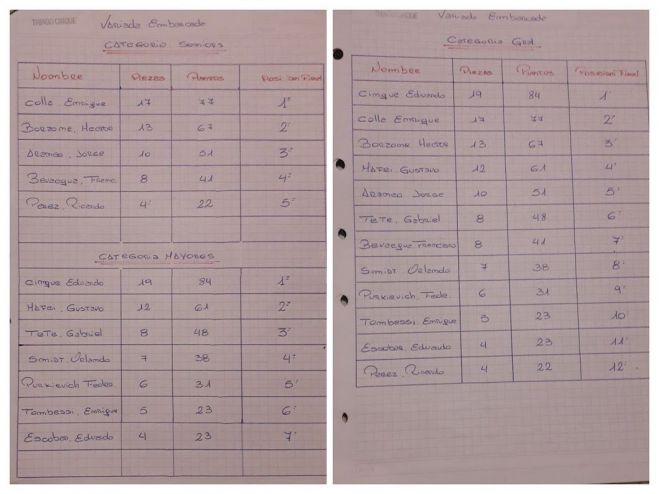 Variada Embarcada
CATEGORIA Seniors
Nombre Piezas Puntos Posicion Final
Colla Enrique 17 77 1°
Borzome, Hector 13 67 2°
Aranea, Jorge 10 51 3°
8 41 4°
Perez, Ricardo 4 22 5°
CATEGORIA MAYORES
Cinque Eduardo 19 84 1°
Matei, Gustavo 12 61 2°
Tete, Gabriel 8 48 3°
Smidt, Orlando 7 38 4°
Purkievich Fede. 6 31 5°
Tombessi, Enrique 5 23 6°
Escobar, Eduardo 4 23 7°
Variada Embarcada
Categoria Gral
Nombre Piezas Puntos Posicion Final
Cinque Eduardo 19 84 1°
Colla Enrique 17 77 2°
Borzome Hector 13 67 3°
Matei, Gustavo 12 61 4°
Aranea Jorge 10 51 5°
Tete, Gabriel 8 48 6°
8 41 7°
Smidt Orlando 7 38 8°
Purkievich, Fede. 6 31 9°
Tombessi, Enrique 5 23 10
Escobar, Eduardo 4 23 11°
Perez, Ricardo 4 22 12°